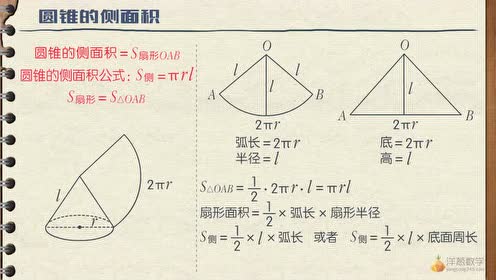 圆锥的侧面积
圆锥的侧面积=S扇形OAB
圆锥的侧面积公式:S侧=πrl
S扇形=S△OAB
l
r
2πr
O
l
l
l
A
B
2πr
弧长=2πr
半径=l
O
l
A
B
2πr
底=2πr
高=l
S△OAB=1/2·2πr·l=πrl
扇形面积=1/2×弧长×扇形半径
S侧=1/2×l×弧长 或者 S侧=1/2×l×底面周长
洋葱数学